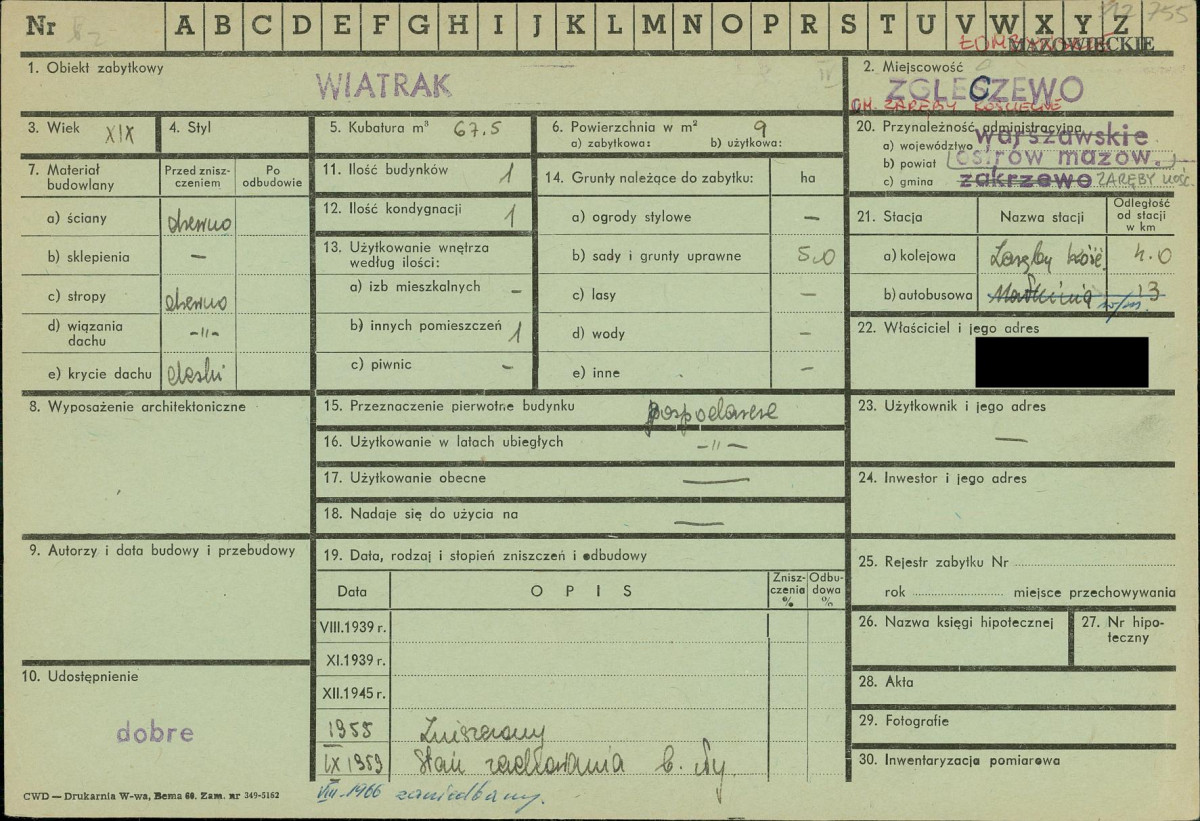 Nr A B C D E F G H I J K L M N O P R S T U V W X Y Z 755
MAZOWIECKIE
1. Obiekt zabytkowy
WIATRAK
2. Miejscowość
ZGLECZEWO
GM. ZARĘBY KOŚCIELNE
3. Wiek XIX
4. Styl
5. Kubatura m³ 67.5
6. Powierzchnia w m² 9
a) zabytkowa: b) użytkowa:
20. Przynależność administracyjna
a) województwo warszawskie
b) powiat ostrów mazow.
c) gmina zakrzewo ZARĘBY KOŚC.
7. Materiał budowlany
Przed znisz-
czeniem
Po
odbudowie
a) ściany drewno
b) sklepienia –
c) stropy drewno
d) wiązania dachu –"–
e) krycie dachu deski
11. Ilość budynków 1
12. Ilość kondygnacji 1
13. Użytkowanie wnętrza
według ilości:
a) izb mieszkalnych –
b) innych pomieszczeń 1
c) piwnic –
14. Grunty należące do zabytku: ha
a) ogrody stylowe –
b) sady i grunty uprawne 5.0
c) lasy –
d) wody –
e) inne –
21. Stacja Nazwa stacji
Odległość
od stacji
w km
a) kolejowa Zaręby Kość. 4.0
b) autobusowa Małkinia 13
w/m.
22. Właściciel i jego adres
8. Wyposażenie architektoniczne
15. Przeznaczenie pierwotne budynku gospodarcze
16. Użytkowanie w latach ubiegłych –"–
17. Użytkowanie obecne —
18. Nadaje się do użycia na —
23. Użytkownik i jego adres
—
24. Inwestor i jego adres
9. Autorzy i data budowy i przebudowy
19. Data, rodzaj i stopień zniszczeń i odbudowy
Data OPIS
Znisz-
czenia
%
Odbu-
dowa
%
VIII.1939 r.
XI.1939 r.
XII.1945 r.
1955 Zniszczony
IX 1959 Stan zachowania b. zły.
VIII.1966 zaniedbany.
25. Rejestr zabytku Nr
rok miejsce przechowywania
26. Nazwa księgi hipotecznej
27. Nr hipo-
teczny
28. Akta
29. Fotografie
30. Inwentaryzacja pomiarowa
10. Udostępnienie
dobre
CWD — Drukarnia W-wa, Bema 60. Zam. nr 349-5162